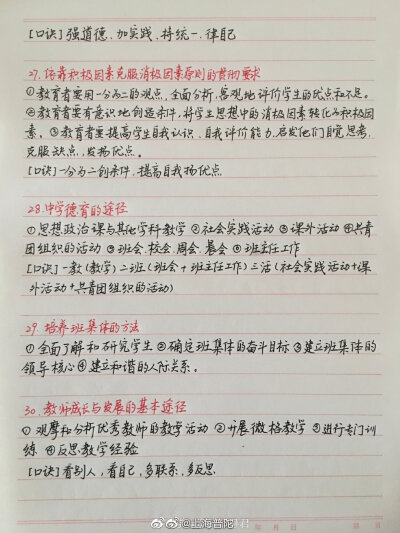 【口诀】强道德、加实践、持统一、律自己
27. 依靠积极因素克服消极因素原则的贯彻要求
①教育者要用一分为二的观点,全面分析,客观地评价学生的优点和不足。
②教育者要有意识地创造条件,将学生思想中的消极因素转化为积极因
素。③教育者要提高学生自我认识、自我评价能力,启发他们自觉思考,
克服缺点,发扬优点。
【口诀】一分为二创条件,提高自我扬优点
28. 中学德育的途径
①思想政治课与其他学科教学 ②社会实践活动 ③课外活动 ④共青
团组织的活动 ⑤班会、校会、周会、晨会 ⑥班主任工作
【口诀】一教(教学)二班(班会+班主任工作)三活(社会实践活动+课
外活动+共青团组织的活动)
29. 培养班集体的方法
①全面了解和研究学生 ②确定班集体的奋斗目标 ③建立班集体的
领导核心 ④建立和谐的人际关系。
30. 教师成长与发展的基本途径
①观摩和分析优秀教师的教学活动 ②开展微格教学 ③进行专门训
练 ④反思教学经验
【口诀】看别人,看自己,多联系,多反思
@上海普陀君
年 月 日